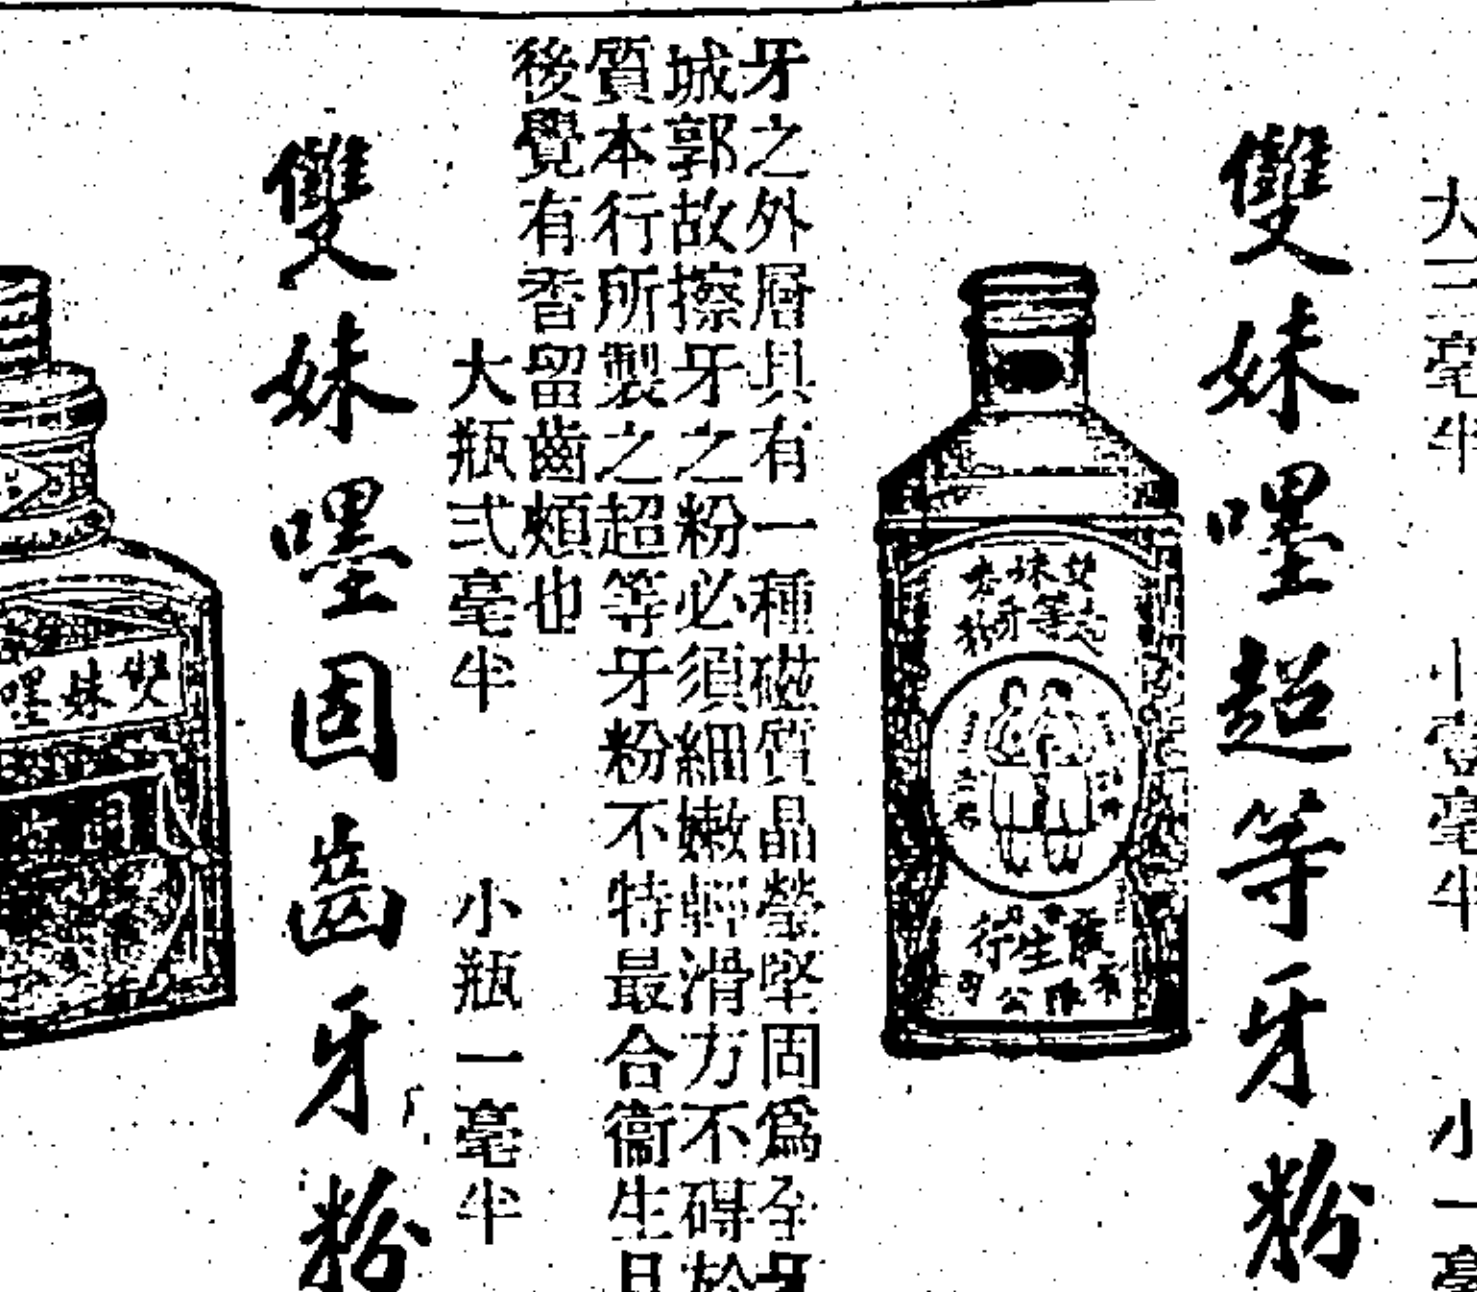 大三毫半
小一毫
雙妹嚜超等牙粉
雙妹
超等牙粉
廣生行
有限公司
牙之外層具有一種磁質晶瑩堅固爲全牙
城郭故擦牙之粉必須細嫩輕滑方不碍於
質本行所製之超等牙粉不特最合衞生且
後覺有香留齒頰也
大瓶弍毫半
小瓶一毫半
雙妹嚜固齒牙粉
雙妹嚜